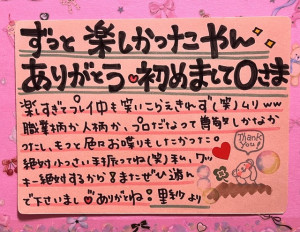 ずっと楽しかったこやん
ありがとう♥初めましてOさま
楽しすぎてプレイ中も笑いこらえきれずし(笑)ムリww
職業柄か人柄か、プロだなって背筋しかなか
ったし、もっと色々お喋りもしたかったー。
絶対小っさい手振ってね(笑)私、ワッ
キー絶対するから!!またぜひ遊ん
で下さいまし♥ありがとね。里紗より
Thank
You!